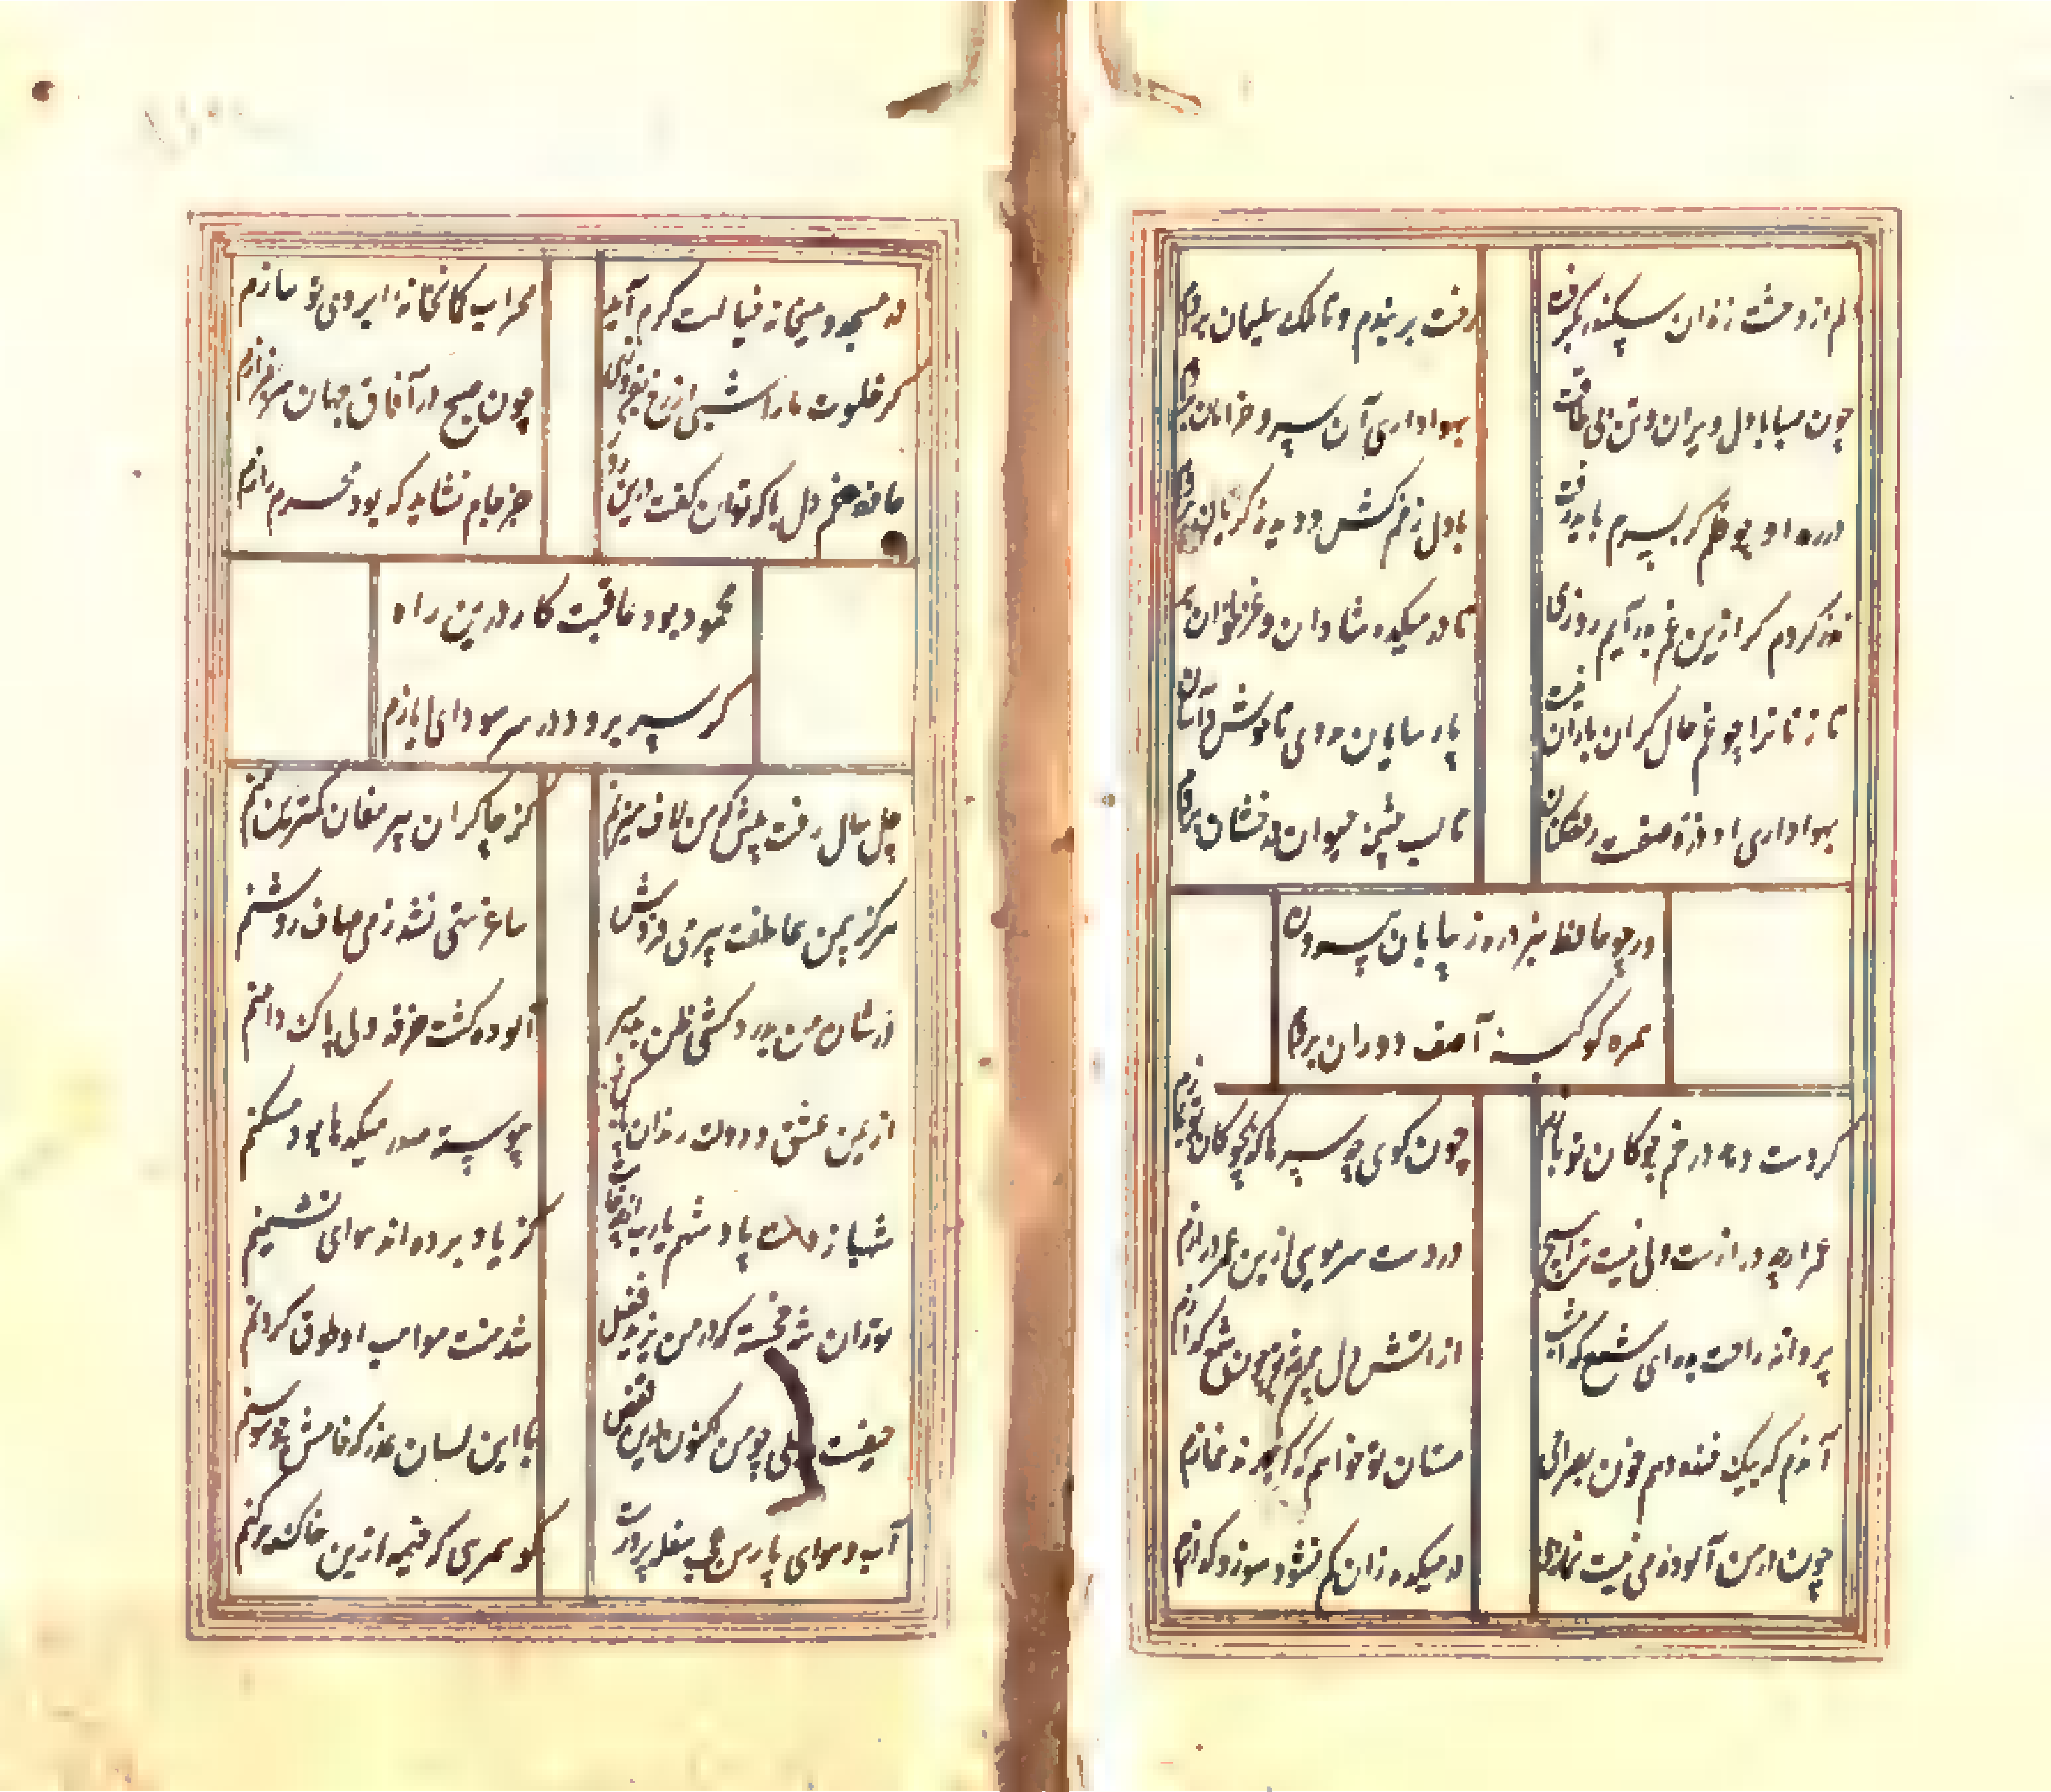 دلم از وحشت زندان سکندر بگرفت
رخت بربندم و تا ملک سلیمان بروم
چون صبا با دل ویران و تن بی طاقت
بهواداری آن سرو خرامان بروم
در ره او چو قلم گر بسرم باید رفت
با دل زخم کش و دیده گریان بروم
نذر کردم گر ازین غم بدر آیم روزی
تا در میکده شادان و غزلخوان بروم
تازیانرا چو غم حال گران باران نیست
پارسایان مددی تا خوش و آسان بروم
بهواداری او ذره صفت رقص کنان
تا لب چشمه حیوان درفشان بروم
ور چو حافظ نبرد روز بپایان بیرون
همره کوکبه آصف دوران بروم
گر دست دهد در خم چوکان تو بازم
چون کوی چه سرها که بچوکان تو بازم
عمرارچه درازست ولی نیست مرا هیچ
در دست سر مویی ازین عمر درازم
پروانه راحت بده ای شمع که امشب
از آتش دل پیش تو چون شمع گدازم
آندم که بیک خنده دهم جون صراحی
مستان تو خواهم که گزارند نمازم
چون در من آلوده می نیست نمازی
در میکده زان کم نشود سوز و گدازم
در مسجد و میخانه خیالت گرم آید
محراب کمانخانه ز ابروی تو سازم
گر خلوت ما را شبی از رخ بفروزی
چون صبح در آفاق جهان سر بفرازم
حافظ غم دل با که توان گفت درین دور
جز جام نشاید که بود محرم رازم
محمود بود عاقبت کار درین راه
گر سر برود در سر سودای ایازم
چل سال رفت بیش که من لاف میزنم
کز چاکران پیر مغان کمترین منم
هرگز بیمن عاطفت پیر می فروش
ساغر تهی نشد ز می صاف روشنم
در شان من بدرد کشی ظن بد مبر
آلوده گشت خرقه ولی پاک دامنم
از یمن عشق و دولت رندان پاکباز
پیوسته صدر میکدها بود مسکنم
شهباز دست پادشهم یارب از چه حالت
کز یاد برده اند هوای نشیمنم
توران شه خجسته که در من یزید فضل
شد منت مواهب او طوق گردنم
حیفست بلبلی چو من اکنون درین قفس
با این لسان عذب که خامش چو سوسنم
آب و هوای پارس عجب سفله پرورست
کو همرهی که خیمه ازین خاک بر کنم